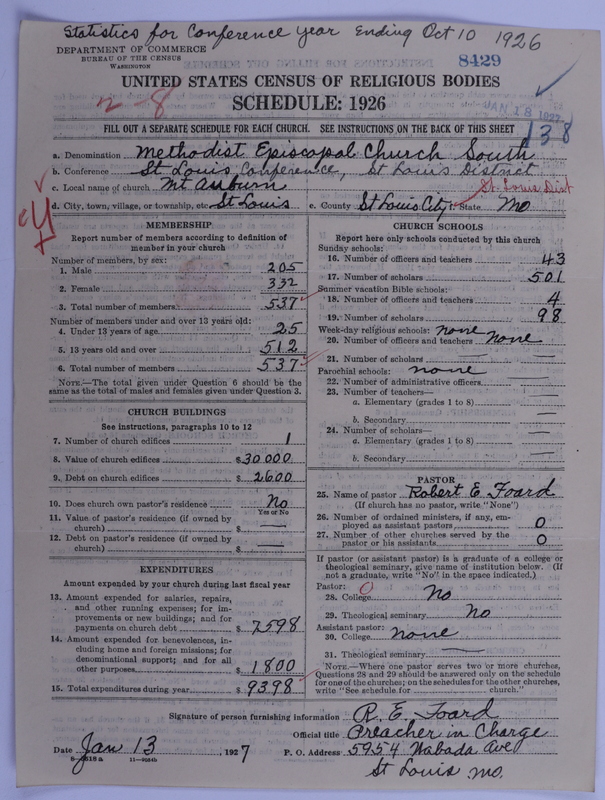 Statistics for Conference year Ending Oct 10 1926
DEPARTMENT OF COMMERCE
BUREAU OF THE CENSUS
WASHINGTON
8429
UNITED STATES CENSUS OF RELIGIOUS BODIES
2-8
SCHEDULE: 1926
JAN 18 1927
138
FILL OUT A SEPARATE SCHEDULE FOR EACH CHURCH. SEE INSTRUCTIONS ON THE BACK OF THIS SHEET
a. Denomination Methodist Episcopal Church South
b. Conference St Louis Conference, St Louis District
c. Local name of church Mt Auburn
St. Louis Dist
d. City, town, village, or township, etc St Louis e. County St Louis City f. State Mo
MEMBERSHIP
Report number of members according to definition of
member in your church
Number of members, by sex:
1. Male 205
2. Female 332
3. Total number of members 537
Number of members under and over 13 years old:
4. Under 13 years of age 25
5. 13 years old and over 512
6. Total number of members 537
NOTE.—The total given under Question 6 should be the
same as the total of males and females given under Question 3.
CHURCH BUILDINGS
See instructions, paragraphs 10 to 12
7. Number of church edifices 1
8. Value of church edifices $30000
9. Debt on church edifices $2600
10. Does church own pastor's residence No
Yes or No
11. Value of pastor's residence (if owned by
church) $ —
12. Debt on pastor's residence (if owned by
church) $ —
EXPENDITURES
Amount expended by your church during last fiscal year
13. Amount expended for salaries, repairs,
and other running expenses; for im-
provements or new buildings; and for
payments on church debt $7598
14. Amount expended for benevolences, in-
cluding home and foreign missions; for
denominational support; and for all
other purposes $1800
15. Total expenditures during year $9398
CHURCH SCHOOLS
Report here only schools conducted by this church
Sunday schools:
16. Number of officers and teachers 43
17. Number of scholars 501
Summer vacation Bible schools:
18. Number of officers and teachers 4
19. Number of scholars 98
Week-day religious schools: none
20. Number of officers and teachers none
21. Number of scholars — —
Parochial schools: none
22. Number of administrative officers —
23. Number of teachers—
a. Elementary (grades 1 to 8) —
b. Secondary —
24. Number of scholars—
a. Elementary (grades 1 to 8) —
b. Secondary —
PASTOR
25. Name of pastor Robert E. Foard
(If church has no pastor, write "None")
26. Number of ordained ministers, if any, em-
ployed as assistant pastors 0
27. Number of other churches served by the
pastor or his assistants 0
If pastor (or assistant pastor) is a graduate of a college or
theological seminary, give name of institution below. (If
not a graduate, write "No" in the space indicated.)
Pastor: 0
28. College No
29. Theological seminary No
Assistant pastor:
30. College none
31. Theological seminary —
NOTE.—Where one pastor serves two or more churches,
Questions 28 and 29 should be answered only on the schedule
for one of the churches; on the schedules for the other churches,
write "See schedule for church."
Signature of person furnishing information R. E. Foard
Official title Preacher in Charge
Date Jan 13, 1927 P. O. Address 5954 Wabada Ave
St Louis Mo.